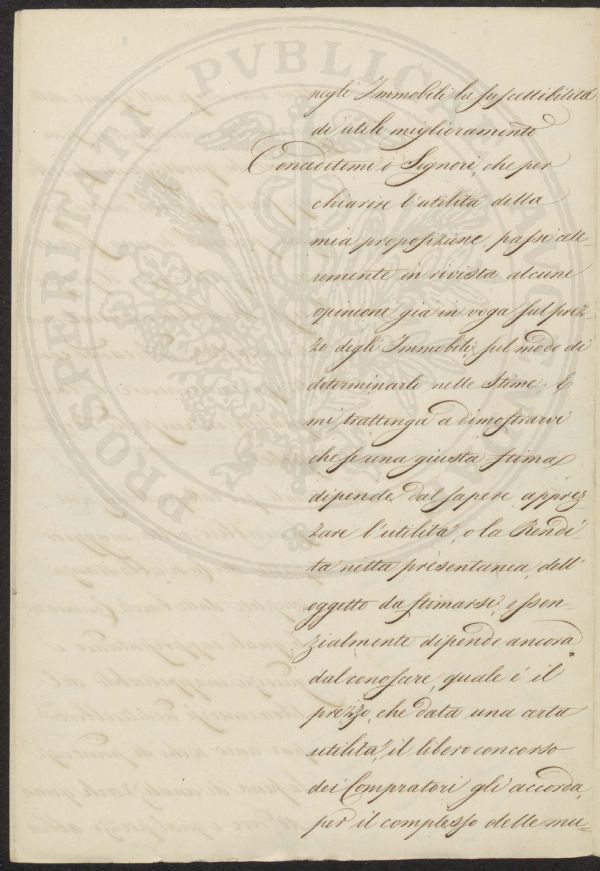 negli Immobili la suscettibilità
di utile miglioramento
Concedetemi o Signori, che per
chiarire l'utilità della
mia proposizione, passi cele-
remente in rivista alcune
opinioni già in voga sul prez-
zo degli Immobili, sul modo di
determinarlo nelle Stime. E
mi trattenga a dimostrarvi
che se una giusta stima
dipende dal sapere apprez
zare l'utilità, o la Rendi-
ta netta presentanea, dell'
oggetto da stimarsi, essen-
zialmente dipende ancora
dal conoscere, quale è il
prezzo, che data una certa
utilità, il libero concorso
dei Compratori gli accorda,
per il complesso delle mu-
PROSPERITATI PVBLICAE